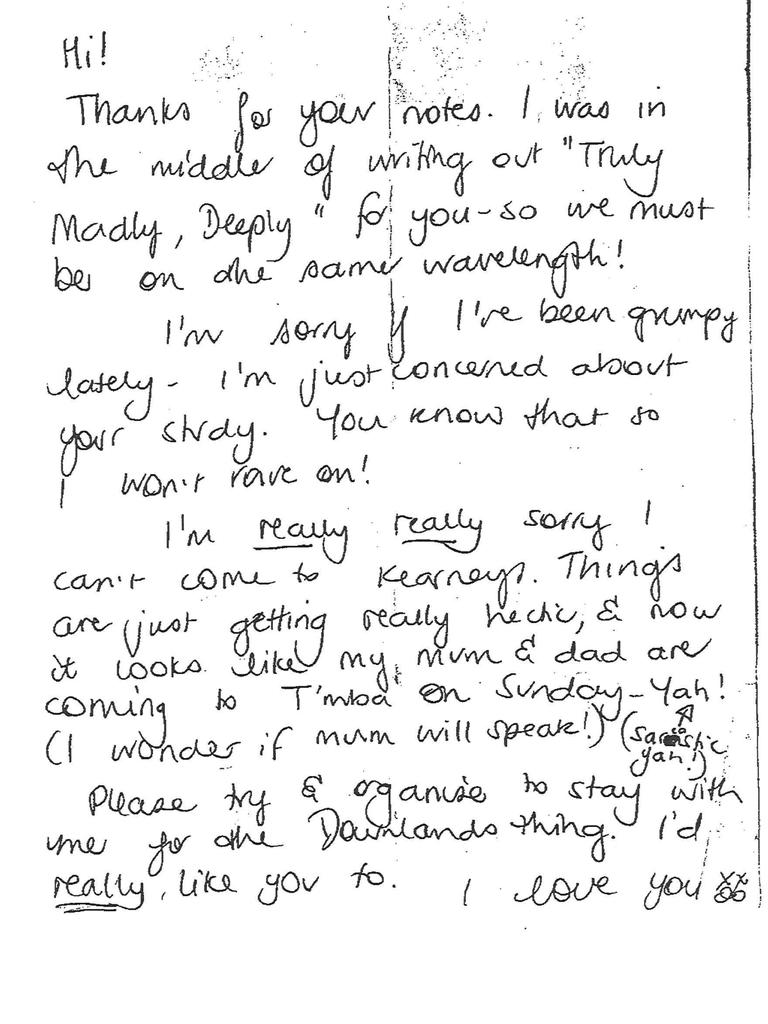 Hi!
Thanks for your notes. I was in
the middle of writing out "Truly
Madly, Deeply" for you - so we must
be on the same wavelength!
I'm sorry if I've been grumpy
lately - I'm just concerned about
your study. You know that so
I won't rave on!
I'm really really sorry I
can't come to Kearneys. Things
are just getting really hectic, & now
it looks like my mum & dad are
coming to T'mba on Sunday - Yah!
(I wonder if mum will speak!) (sarcastic
yah!)
Please try & organise to stay with
me for the Downlands thing. I'd
really, like you to. I love you xx
oo